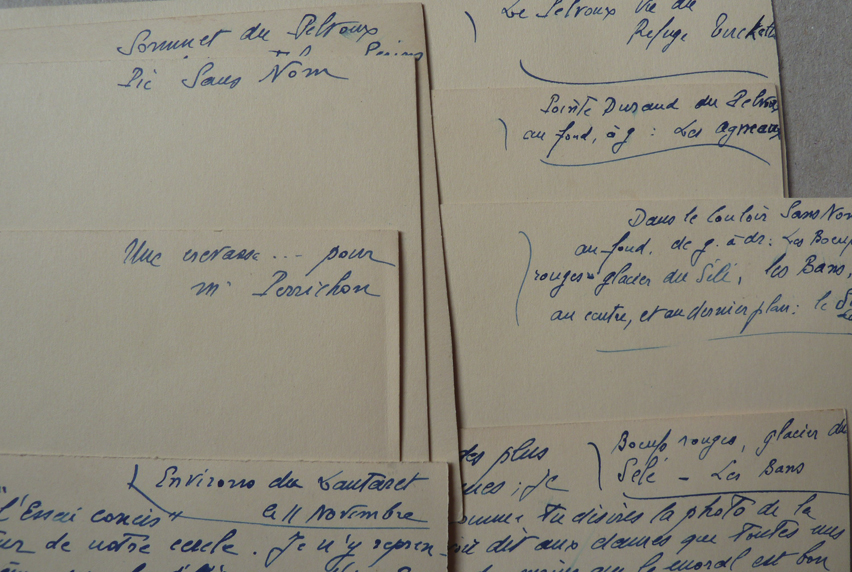 Sommet du Pelvoux
Pic Sans Nom
Une crevasse ... pour
Mr Perrichon
Environs du Lautaret
le 11 Novembre
l'Essai concis
de notre cercle. Je n'y repren-
Le Pelvoux vu du
Refuge Tuckett
Pointe Durand du Pelvoux
au fond, à g : Les Agneaux
Dans le couloir Sans Nom
au fond. de g. à dr: Les Boeufs
rouges - glacier du Sélé, les Bans,
au centre, et au dernier plan: le
Boeufs rouges, glacier du
Sélé - Les Bans
des plus
; je
comme tu désires la photo de la
dit aux dames que toutes nos
le moral est bon